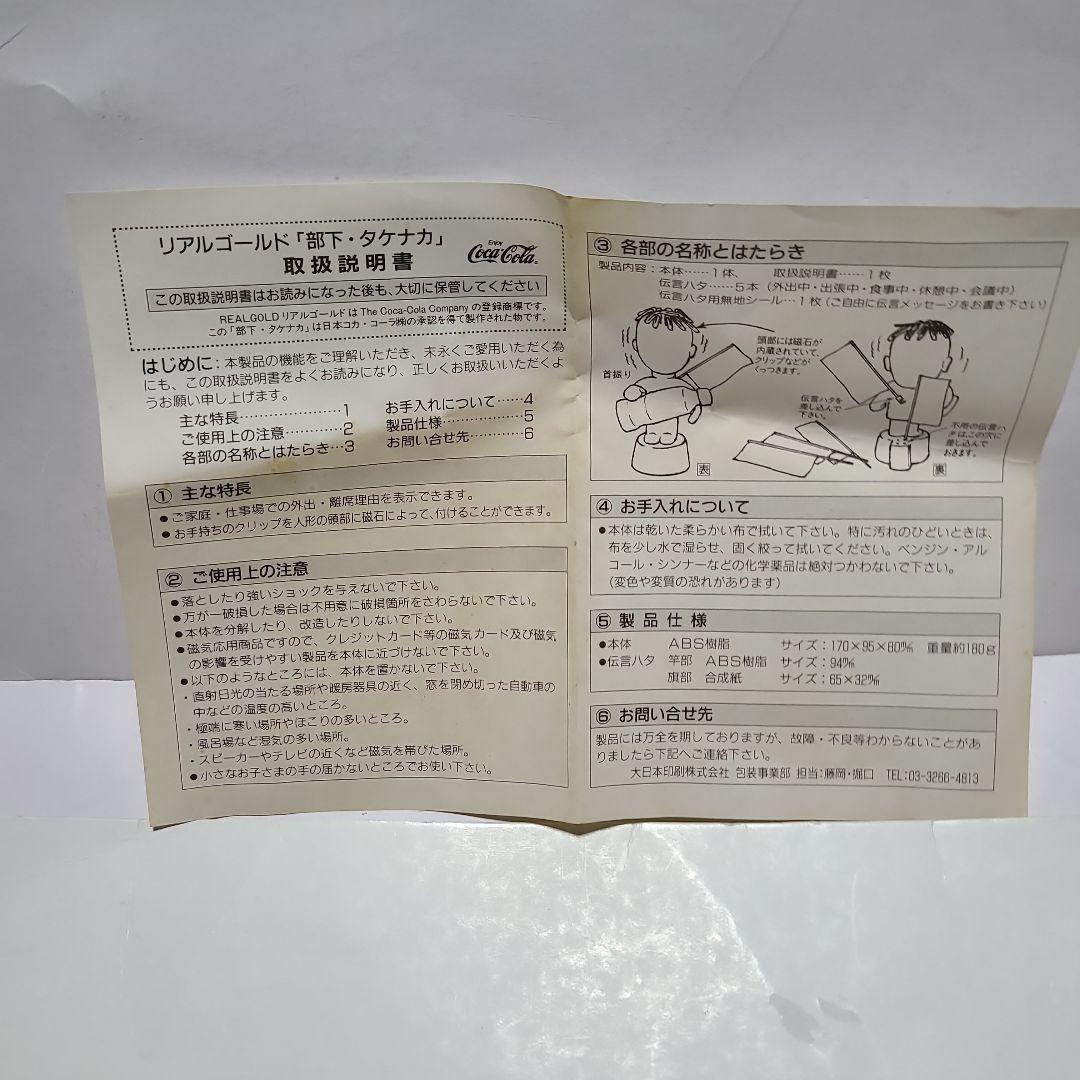 リアルゴールド「部下・タケナカ」
取扱説明書
Enjoy
Coca-Cola
この取扱説明書はお読みになった後も、大切に保管してください
REALGOLD リアルゴールドは The Coca-Cola Company の登録商標です。
この「部下・タケナカ」は日本コカ・コーラ㈱の承認を得て製作された物です。
はじめに：本製品の機能をご理解いただき、末永くご愛用いただく為
にも、この取扱説明書をよくお読みになり、正しくお取扱いいただくよ
うお願い申し上げます。
主な特長…………………1
ご使用上の注意…………2
各部の名称とはたらき…3
お手入れについて……4
製品仕様………………5
お問い合せ先…………6
① 主な特長
●ご家庭・仕事場での外出・離席理由を表示できます。
●お手持ちのクリップを人形の頭部に磁石によって、付けることができます。
② ご使用上の注意
●落としたり強いショックを与えないで下さい。
●万が一破損した場合は不用意に破損箇所をさわらないで下さい。
●本体を分解したり、改造したりしないで下さい。
●磁気応用商品ですので、クレジットカード等の磁気カード及び磁気
の影響を受けやすい製品を本体に近づけないで下さい。
●以下のようなところには、本体を置かないで下さい。
・直射日光の当たる場所や暖房器具の近く、窓を閉め切った自動車の
中などの温度の高いところ。
・極端に寒い場所やほこりの多いところ。
・風呂場など湿気の多い場所。
・スピーカーやテレビの近くなど磁気を帯びた場所。
●小さなお子さまの手の届かないところでお使い下さい。
③ 各部の名称とはたらき
製品内容：本体……1体、 取扱説明書……1枚
伝言ハタ……5本（外出中・出張中・食事中・休憩中・会議中）
伝言ハタ用無地シール…1枚（ご自由に伝言メッセージをお書き下さい）
首振り
頭部には磁石が
内蔵されていて、
クリップなどが
くっつきます。
伝言ハタを
差し込んで
下さい。
不用の伝言ハ
タはこの穴に
差し込んで
おきます。
表
裏
④ お手入れについて
●本体は乾いた柔らかい布で拭いて下さい。特に汚れのひどいときは、
布を少し水で湿らせ、固く絞って拭いてください。ベンジン・アル
コール・シンナーなどの化学薬品は絶対つかわないで下さい。
（変色や変質の恐れがあります）
⑤ 製品仕様
●本体 ABS樹脂 サイズ：170×95×80㎜ 重量約180g
●伝言ハタ 竿部 ABS樹脂 サイズ：94㎜
旗部 合成紙 サイズ：65×32㎜
⑥ お問い合せ先
製品には万全を期しておりますが、故障・不良等わからないことがあ
りましたら下記へご連絡下さい。
大日本印刷株式会社 包装事業部 担当：藤岡・堀口 TEL：03-3266-4813